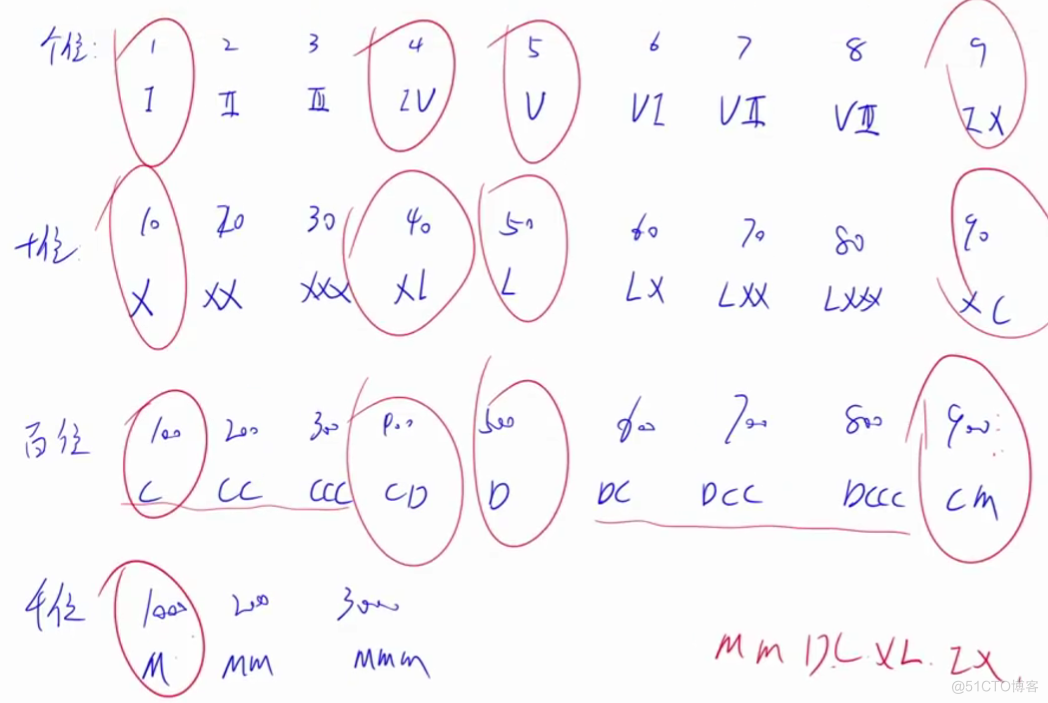 个位: 1 2 3 4 5 6 7 8 9
I II III IV V VI VII VIII IX
十位: 10 20 30 40 50 60 70 80 90
X XX XXX XL L LX LXX LXXX XC
百位 100 200 300 400 500 600 700 800 900
C CC CCC CD D DC DCC DCCC CM
千位 1000 2000 3000
M MM MMM
MMDC XL IX
@51CTO博客